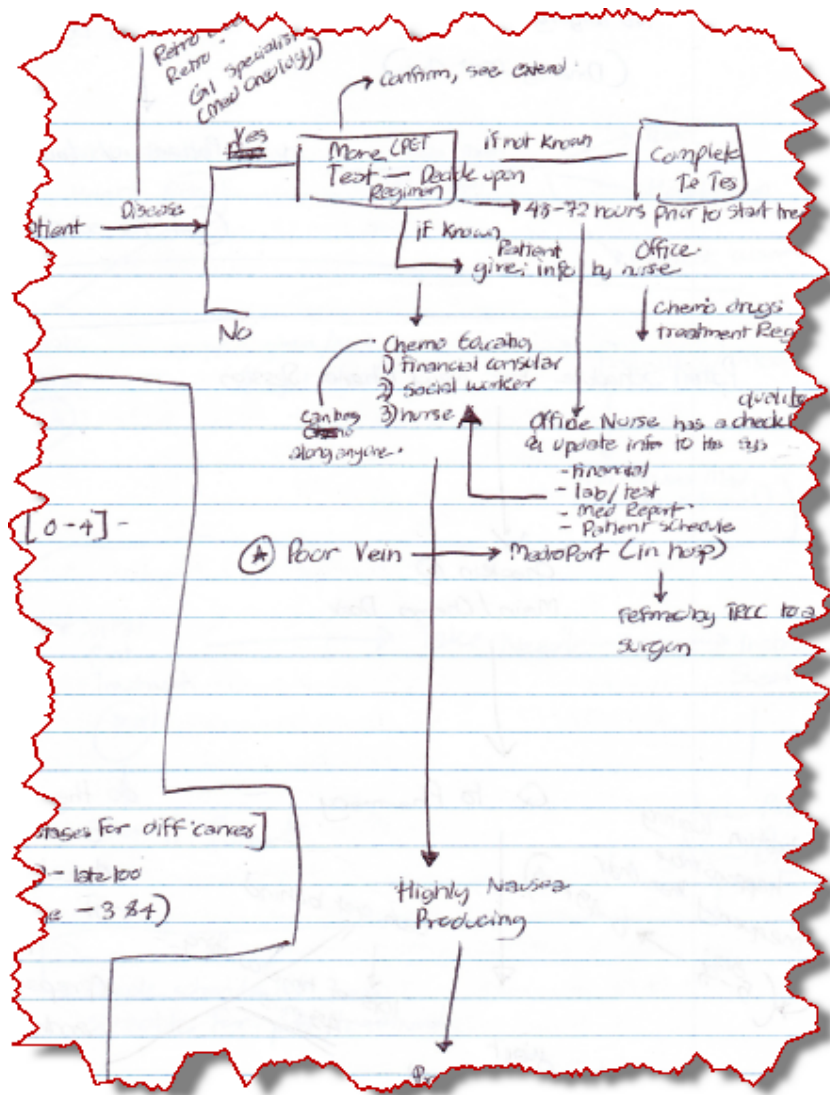 Retro
Retro -
GI specialist
(Med oncology)
Confirm, see extend.
Yes
More CPET
Test — Decide upon
Regimen
if not known
Complete
Te Tes
48-72 hours prior to start tre
atient
Disease
if known
Patient
give; info by nurse
Office
No
chemo drugs
treatment Reg
Chemo
1) Financial consular
2) social worker
3) nurse
can bring
along anyone.
Office Nurse has a check
& update info to the sys
- Financial
- lab/test
- Med Report
- Patient schedule
[0-4] -
(A) Poor Vein
MedroPort (in hosp)
by TRCC to a
surgen
stages for diff cancer]
) - late too
e - 3 & 4)
Highly Nausea
Producing